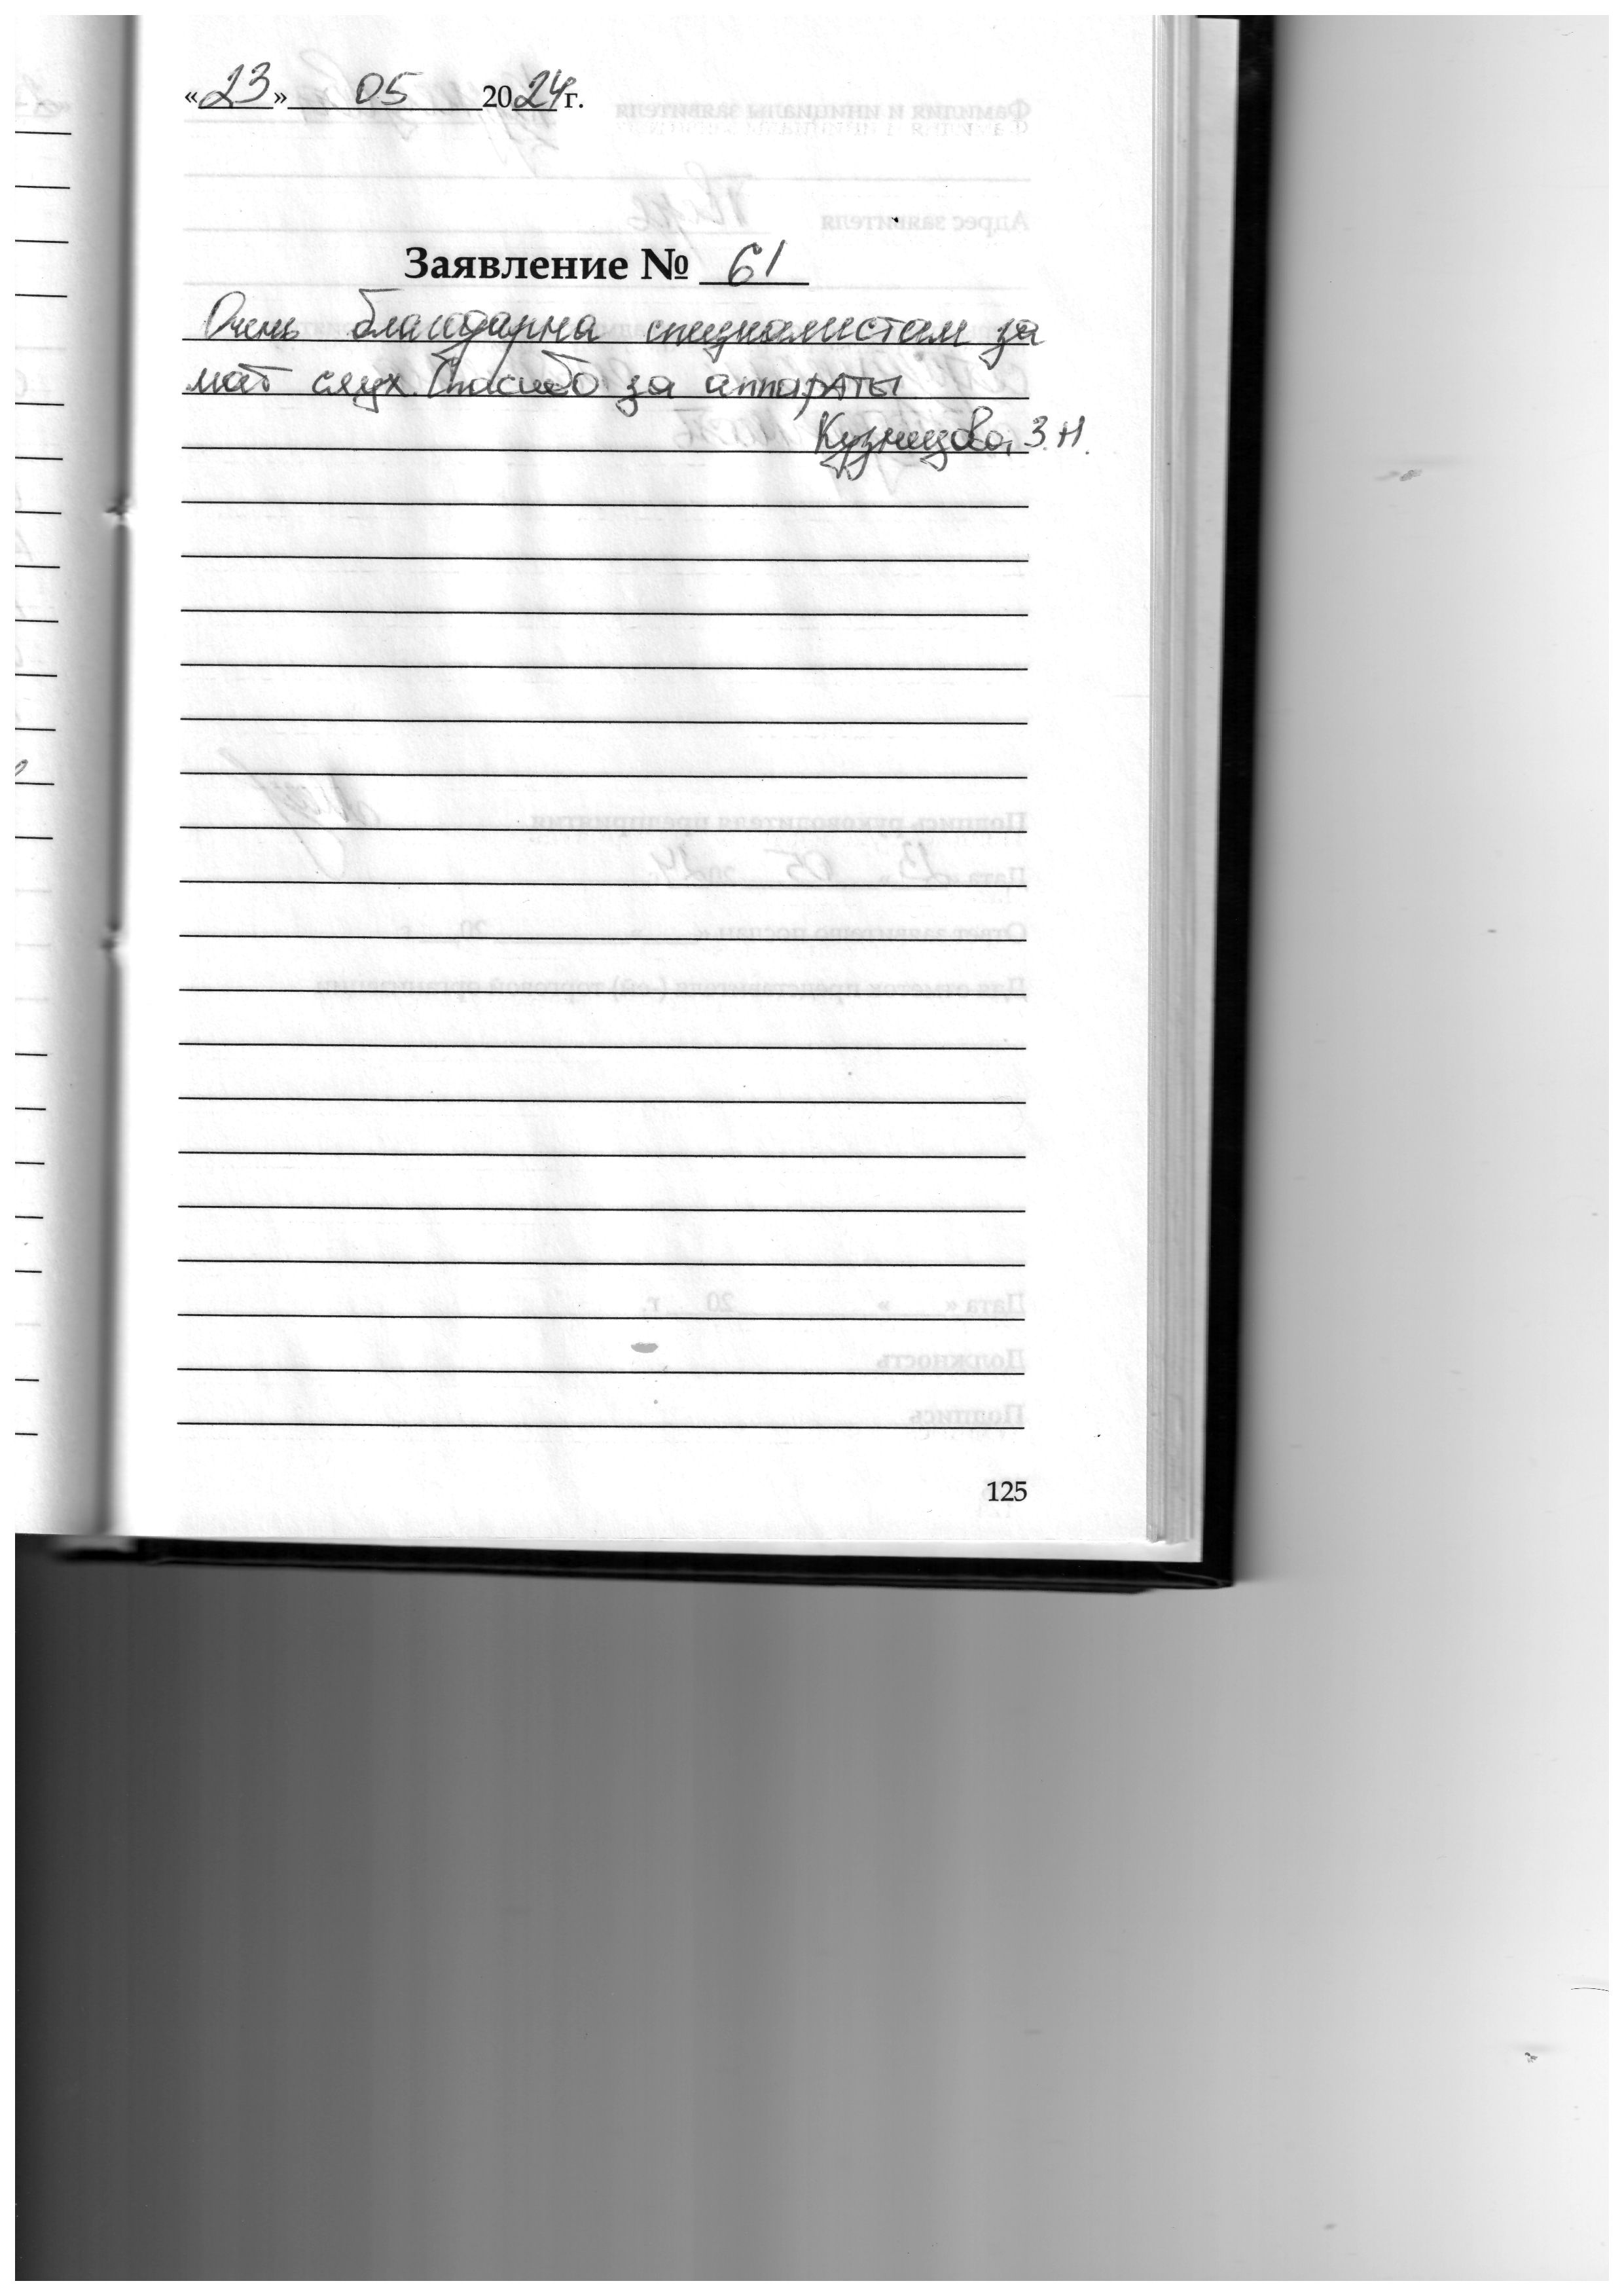 «23» 05 2024 г.
Заявление № 61
Очень благодарна специалистам за
мой слух. Спасибо за аппараты
Кузнецова З.Н.
125